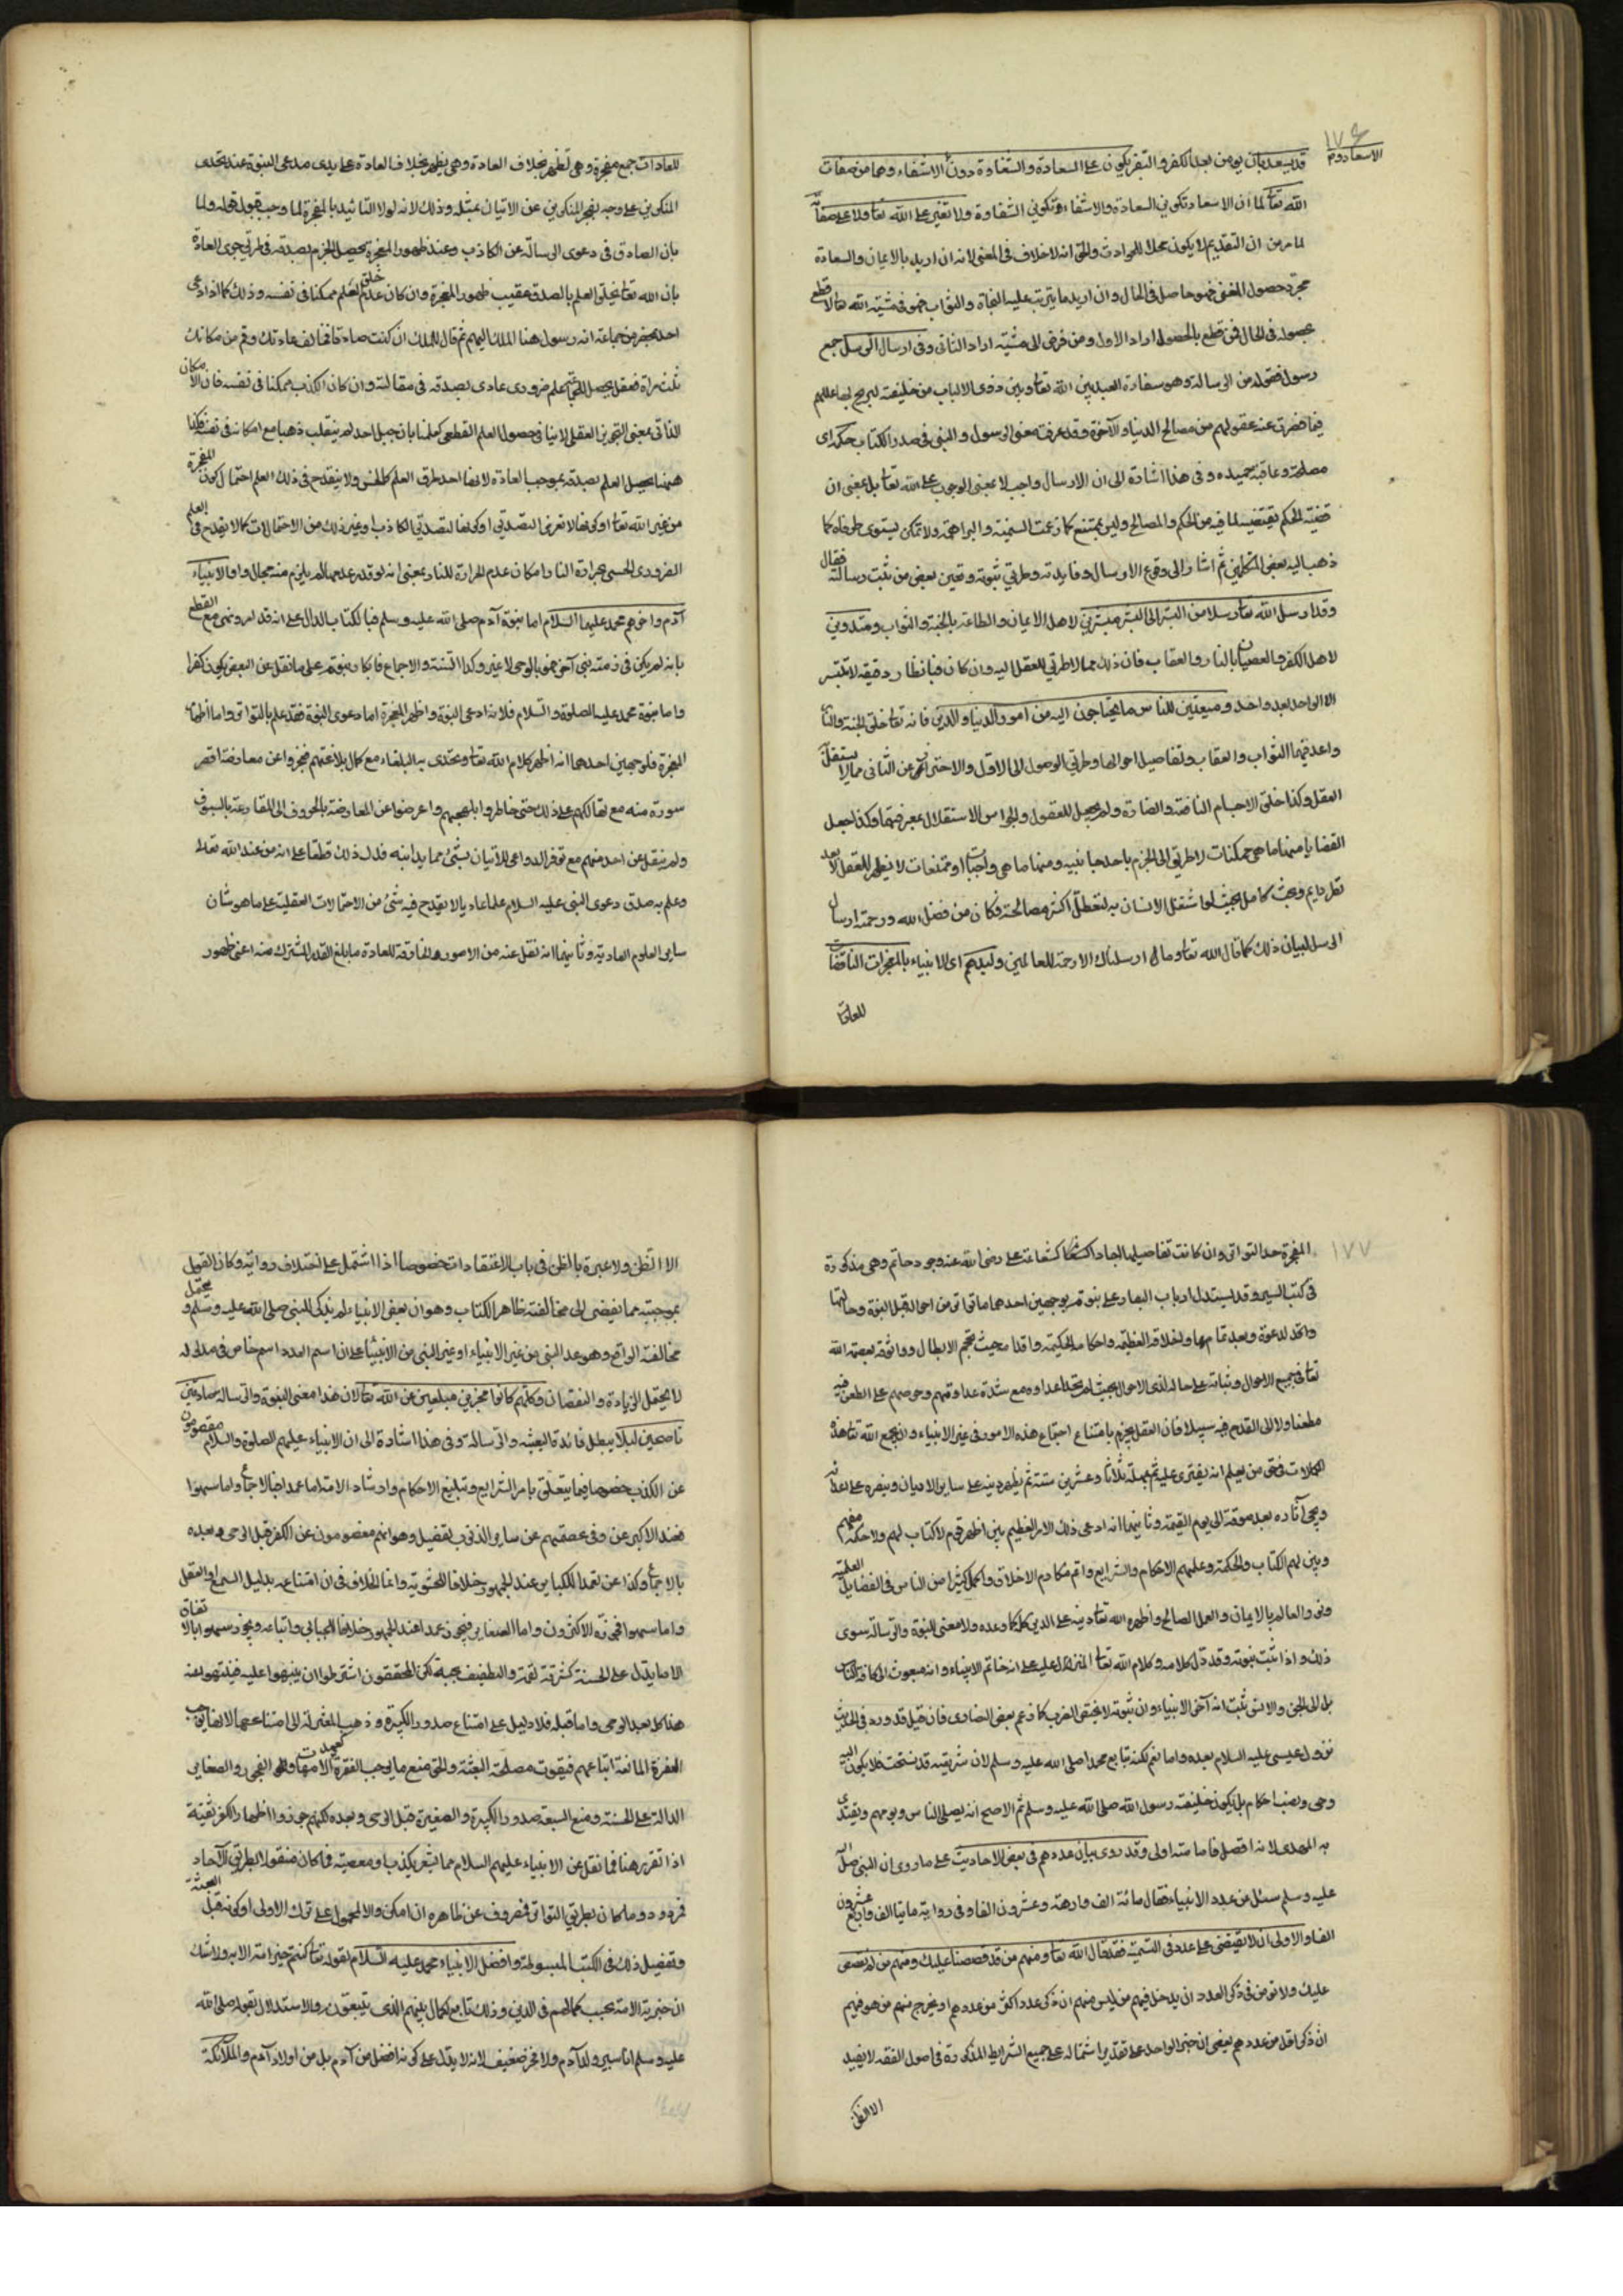 ١٧٦
الاسعاد دوم
قد يسعد بان يؤمن بعد الكفر والتغير يكون على السعادة والشقاوة دون الاسعاد والاشقاء وهما من صفات
الله تعا لما ان الاسعاد تكوين السعادة والاشقاء تكوين الشقاوة ولا تغير على الله تعا ولا على صفاته
لما مر من ان القديم لا يكون محلا للحوادث والحق انه لا خلاف في المعنى لانه ان اريد بالايمان والسعادة
مجرد حصول المعنى فهو حاصل في الحال وان اريد ما يترتب عليه النجاة والثواب فهو في مشية الله تعا لا قطع
بحصوله في الحال فمن قطع بالحصول اراد الاول ومن فوض الى مشيته اراد الثاني وفي ارسال الرسل جمع
رسول فعول من الرسالة وهو سفارة العبد بين الله تعا وبين ذوي الالباب من خليقته ليزيح بها عللهم
فيما قصرت عنه عقولهم من مصالح الدنيا والآخرة وقد عرفت معنى الرسول والنبي في صدر الكتاب حكمة اى
مصلحة وعاقبة حميده وفي هذا اشادة الى ان الارسال واجب لا بمعنى الوجوب على الله تعا بل بمعنى ان
قضية الحكم يقتضيه لما فيه من الحكم والمصالح وليس بممتنع كما زعمت السمنية والبراهمة ولا بممكن يستوى طرفاه كما
ذهب اليه بعض المتكلمين ثم اشار الى وقوع الارسال وفايدته وطريق ثبوته وتعيين بعض من ثبت رسالته فقال
وقد ارسل الله تعا رسلا من البشر الى البشر مبشرين لاهل الايمان والطاعة بالجنة والثواب ومنذرين
لاهل الكفر والعصيان بالنار والعقاب فان ذلك مما لا طريق للعقل اليه وان كان فبانظار دقيقه لا تتيسر
الا لواحد بعد واحد ومبينين للناس ما يحتاجون اليه من امور الدنيا والدين فانه تعا خلق الجنة والنار
واعد فيهما الثواب والعقاب وتفاصيل احوالها وطريق الوصول الى الاول والاحتراز عن الثاني مما لا يستقل
العقل وكذا خلق الاجسام النافعة والضارة ولم يجعل للعقول والحواس الاستقلال بمعرفتهما وكذا جعل
القضايا منها ما هي ممكنات لا طريق الى الجزم باحد جانبيه ومنها ما هي واجبات او ممتنعات لا يظهر للعقل الا بعد
نظر دايم وبحث كامل بحيث لو اشتغل الانسان به لتعطل اكثر مصالحه فكان من فضل الله ورحمته ارسال
الرسل لبيان ذلك كما قال الله تعا وما ارسلناك الا رحمة للعالمين وايدهم اى الانبياء بالمعجزات الناقضات
للعادات
للعادات جمع معجزة وهي تظهر بخلاف العادة وهي يظهر بخلاف العادة على يدى مدعى النبوة عند تحدى
المنكرين على وجه يعجز المنكرين عن الاتيان بمثله وذلك لانه لولا التائيد بالمعجزة لما وجب قبول قوله ولما
بان الصادق في دعوى الرسالة عن الكاذب وعند ظهور المعجزة يحصل الجزم بصدقه في طريق جرى العادة
بان الله تعا يخلق العلم بالصدق عقيب ظهور المعجزة وان كان عدم خلق العلم ممكنا في نفسه وذلك كما اذا ادعى
احد بمحضر من جماعة انه رسول هذا الملك اليهم ثم قال للملك ان كنت صادقا فخالف عادتك وقم من مكانك
ثلث مراة ففعل يحصل للجماعة علم ضرورى عادى بصدقه في مقالته وان كان الكذب ممكنا في نفسه فان الامكان
الذاتي بمعنى التجويز العقلي لا ينافي حصول العلم القطعى كعلمنا بان جبل احد لم ينقلب ذهبا مع امكانه في نفسه فكذا
ههنا يحصل العلم بصدقه بموجب العادة لانها احد طرق العلم كالحس ولا ينقدح في ذلك العلم احتمال كون المعجزة
من غير الله تعا او كونها لا لغرض التصديق او كونها لتصديق الكاذب او غير ذلك من الاحتمالات كما لا يقدح في العلم
الضرورى الحسى بحرارة النار امكان عدم الحرارة للنار بمعنى انه لو قدر عدمها لم يلزم منه محال واول الانبياء
آدم واخرهم محمد عليهما السلام اما نبوة آدم صلى الله عليه وسلم فبالكتاب الدال على انه قد امر ونهى مع القطع
بانه لم يكن في زمنه نبي آخر فهو بالوحى لا غير وكذا السنة والاجماع فانكار نبوته على ما نقل عن البعض يكون كفرا
واما نبوة محمد عليه الصلوة والسلام فلانه ادعى النبوة واظهر المعجزة اما دعوى النبوة فقد علم بالتواتر واما اظهار
المعجزة فلوجهين احدهما انه اظهر كلام الله تعا وتحدى به البلغاء مع كمال بلاغتهم فعجزوا عن معارضة اقصر
سورة منه مع تهالكهم على ذلك حتى خاطروا بمهجتهم واعرضوا عن المعارضة بالحروف الى المقارعة بالسيوف
ولم ينقل عن احد منهم مع توفر الدواعى للاتيان بشئ مما يدانيه فدل ذلك قطعا على انه من عند الله تعلا
وعلم به صدق دعوى النبي عليه السلام علما عاديا لا يقدح فيه شئ من الاحتمالات العقلية على ما هو شان
ساير العلوم العادية وثانيهما انه نقل عنه من الامور الخارقة للعادة ما بلغ القدر المشترك منه اعنى ظهور
١٧٧
المعجزة حد التواتر وان كانت تفاصيلها احادا كشجاعة على رضى الله عنه وجود حاتم وهي مذكورة
في كتب السير وقد يستدل ارباب البصاير على نبوته بوجهين احدهما ما تواتر من احواله قبل النبوة وحال
الدعوة وبعد تمامها واخلاقه العظيمة واحكامه الحكيمة واقدامه حيث يحجم الابطال ووثوقه بعصمة الله
تعا في جميع الاحوال وثباته على حاله لدى الاحوال بحيث لم يجد اعداوه مع شدة عداوتهم وحرصهم على الطعن فيه
مطعنا ولا الى القدح فيه سبيلا فان العقل يجزم بامتناع اجتماع هذه الامور في غير الانبياء وان يجمع الله تعا هذه
الكمالات في حق من يعلم انه يفترى عليه ثم يمهله ثلاثا وعشرين سنة ثم يظهر دينه على ساير الاديان وينصره على اعدائه
ويحيى آثاره بعد موته الى يوم القيمة وثانيهما انه ادعى ذلك الامر العظيم بين اظهر قوم لا كتاب لهم ولا حكمة معهم
وبين لهم الكتاب والحكمة وعلمهم الاحكام والشرايع واتم مكارم الاخلاق واكمل كثيرا من الناس في الفضايل العلمية
ونور العالم بالايمان والعمل الصالح واظهره الله تعا دينه على الدين كله كما وعده ولا معنى للنبوة والرسالة سوى
ذلك واذا ثبت نبوته وقد دل كلامه وكلام الله تعا المنزل عليه على انه خاتم الانبياء وانه مبعوث الى كافة الناس
بل الى الجن والانس ثبت انه آخر الانبياء وان نبوته لا يختص العرب كما زعم بعض النصارى فان قيل قد ورد في الحديث
نزول عيسى عليه السلام بعده واما نعم لكنه تابع محمدا صلى الله عليه وسلم لان شريعته قد نسخت فلا يكون اليه
وحى ونصب احكام بل يكون خليفة رسول الله صلى الله عليه وسلم ثم الاصح انه يصلى الناس ويومهم ويقتدى
به المهدى لانه افضل فامامته اولى وقد روى بيان عددهم في بعض الاحاديث على ما روى ان النبي صلى الله
عليه وسلم سئل عن عدد الانبياء فقال مائة الف واربعة وعشرون الفا وفي رواية مايتا الف واربع وعشرون
الفا والاولى ان لا يقتصر على عدد في التسمية فقد قال الله تعا ومنهم من قد قصصنا عليك ومنهم من لم نقصص
عليك ولا نؤمن في ذكر العدد ان يدخل فيهم من ليس منهم ان ذكر عدد اكثر من عددهم او يخرج منهم من هو فيهم
ان ذكر اقل من عددهم يعنى ان خبر الواحد على تقدير اشتماله على جميع الشرايط المذكورة في اصول الفقه لا يفيد
الا الظن
الا الظن ولا عبرة بالظن في باب الاعتقادات خصوصا اذا اشتمل على اختلاف رواية وكان القول
بموجبه مما يفضى الى مخالفة ظاهر الكتاب وهو ان بعض الانبياء لم يذكر للنبي صلى الله عليه وسلم ويحتمل
مخالفة الواقع وهو عد النبي من غير الانبياء او غير النبي من الانبياء على ان اسم العدد اسم خاص في مدلوله
لا يحتمل الزيادة والنقصان وكلهم كانوا مخبرين مبلغين عن الله تعا لان هذا معنى النبوة والرسالة صادقين
ناصحين ليلا يبطل فائدة البعثة والرسالة وفي هذا اشادة الى ان الانبياء عليهم الصلوة والسلام معصومون
عن الكذب خصوصا فيما يتعلق بامر الشرايع وتبليغ الاحكام وارشاد الامة اما عمدا فبالاجماع واما سهوا
فعند الاكثرين وفي عصمتهم عن ساير الذنوب تفصيل وهو انهم معصومون عن الكفر قبل الوحى وبعده
بالاجماع وكذا عن تعمد الكباير عند الجمهور خلافا للحشوية وانما الخلاف في ان امتناعه بدليل السمع او العقل
واما سهوا فجوزه الاكثرون واما الصغاير فيجوز عمدا عند الجمهور خلافا للجبايى واتباعه ويجوز سهوا بالاتفاق
الا ما يدل على الخسة كسرقة لقمة والتطفيف بحبة لكن المحققون اشترطوا ان ينبهوا عليه فينتهوا عنه
هذا كله بعد الوحى واما قبله فلا دليل على امتناع صدور الكبيرة وذهب المعتزلة الى امتناعها لانها توجب
النفرة المانعة اتباعهم فيفوت مصلحة البعثة والحق منع ما يوجب النفرة كعهر الامهات والفجور والصغاير
الدالة على الخسة ومنع الشيعة صدور الكبيرة والصغيرة قبل الوحى وبعده لكنهم جوزوا اظهار الكفر تقية
اذا تقرر هذا فما نقل عن الانبياء عليهم السلام مما يشعر بكذب او معصية فما كان منقولا بطريق الآحاد
فمردود وما كان بطريق التواتر فمصروف عن ظاهره ان امكن والا فمحمول على ترك الاولى او كونه قبل البعثة
وتفصيل ذلك في الكتب المبسوطة وافضل الانبياء محمد عليه السلام لقوله تعا كنتم خير امة الاية ولا شك
ان خيرية الامة بحسب كمالهم في الدين وذلك تابع لكمال نبيهم الذى يتبعونه والاستدلال بقوله صلى الله
عليه وسلم انا سيد ولد آدم ولا فخر ضعيف لانه لا يدل على كونه افضل من آدم بل من اولاد آدم والملائكة